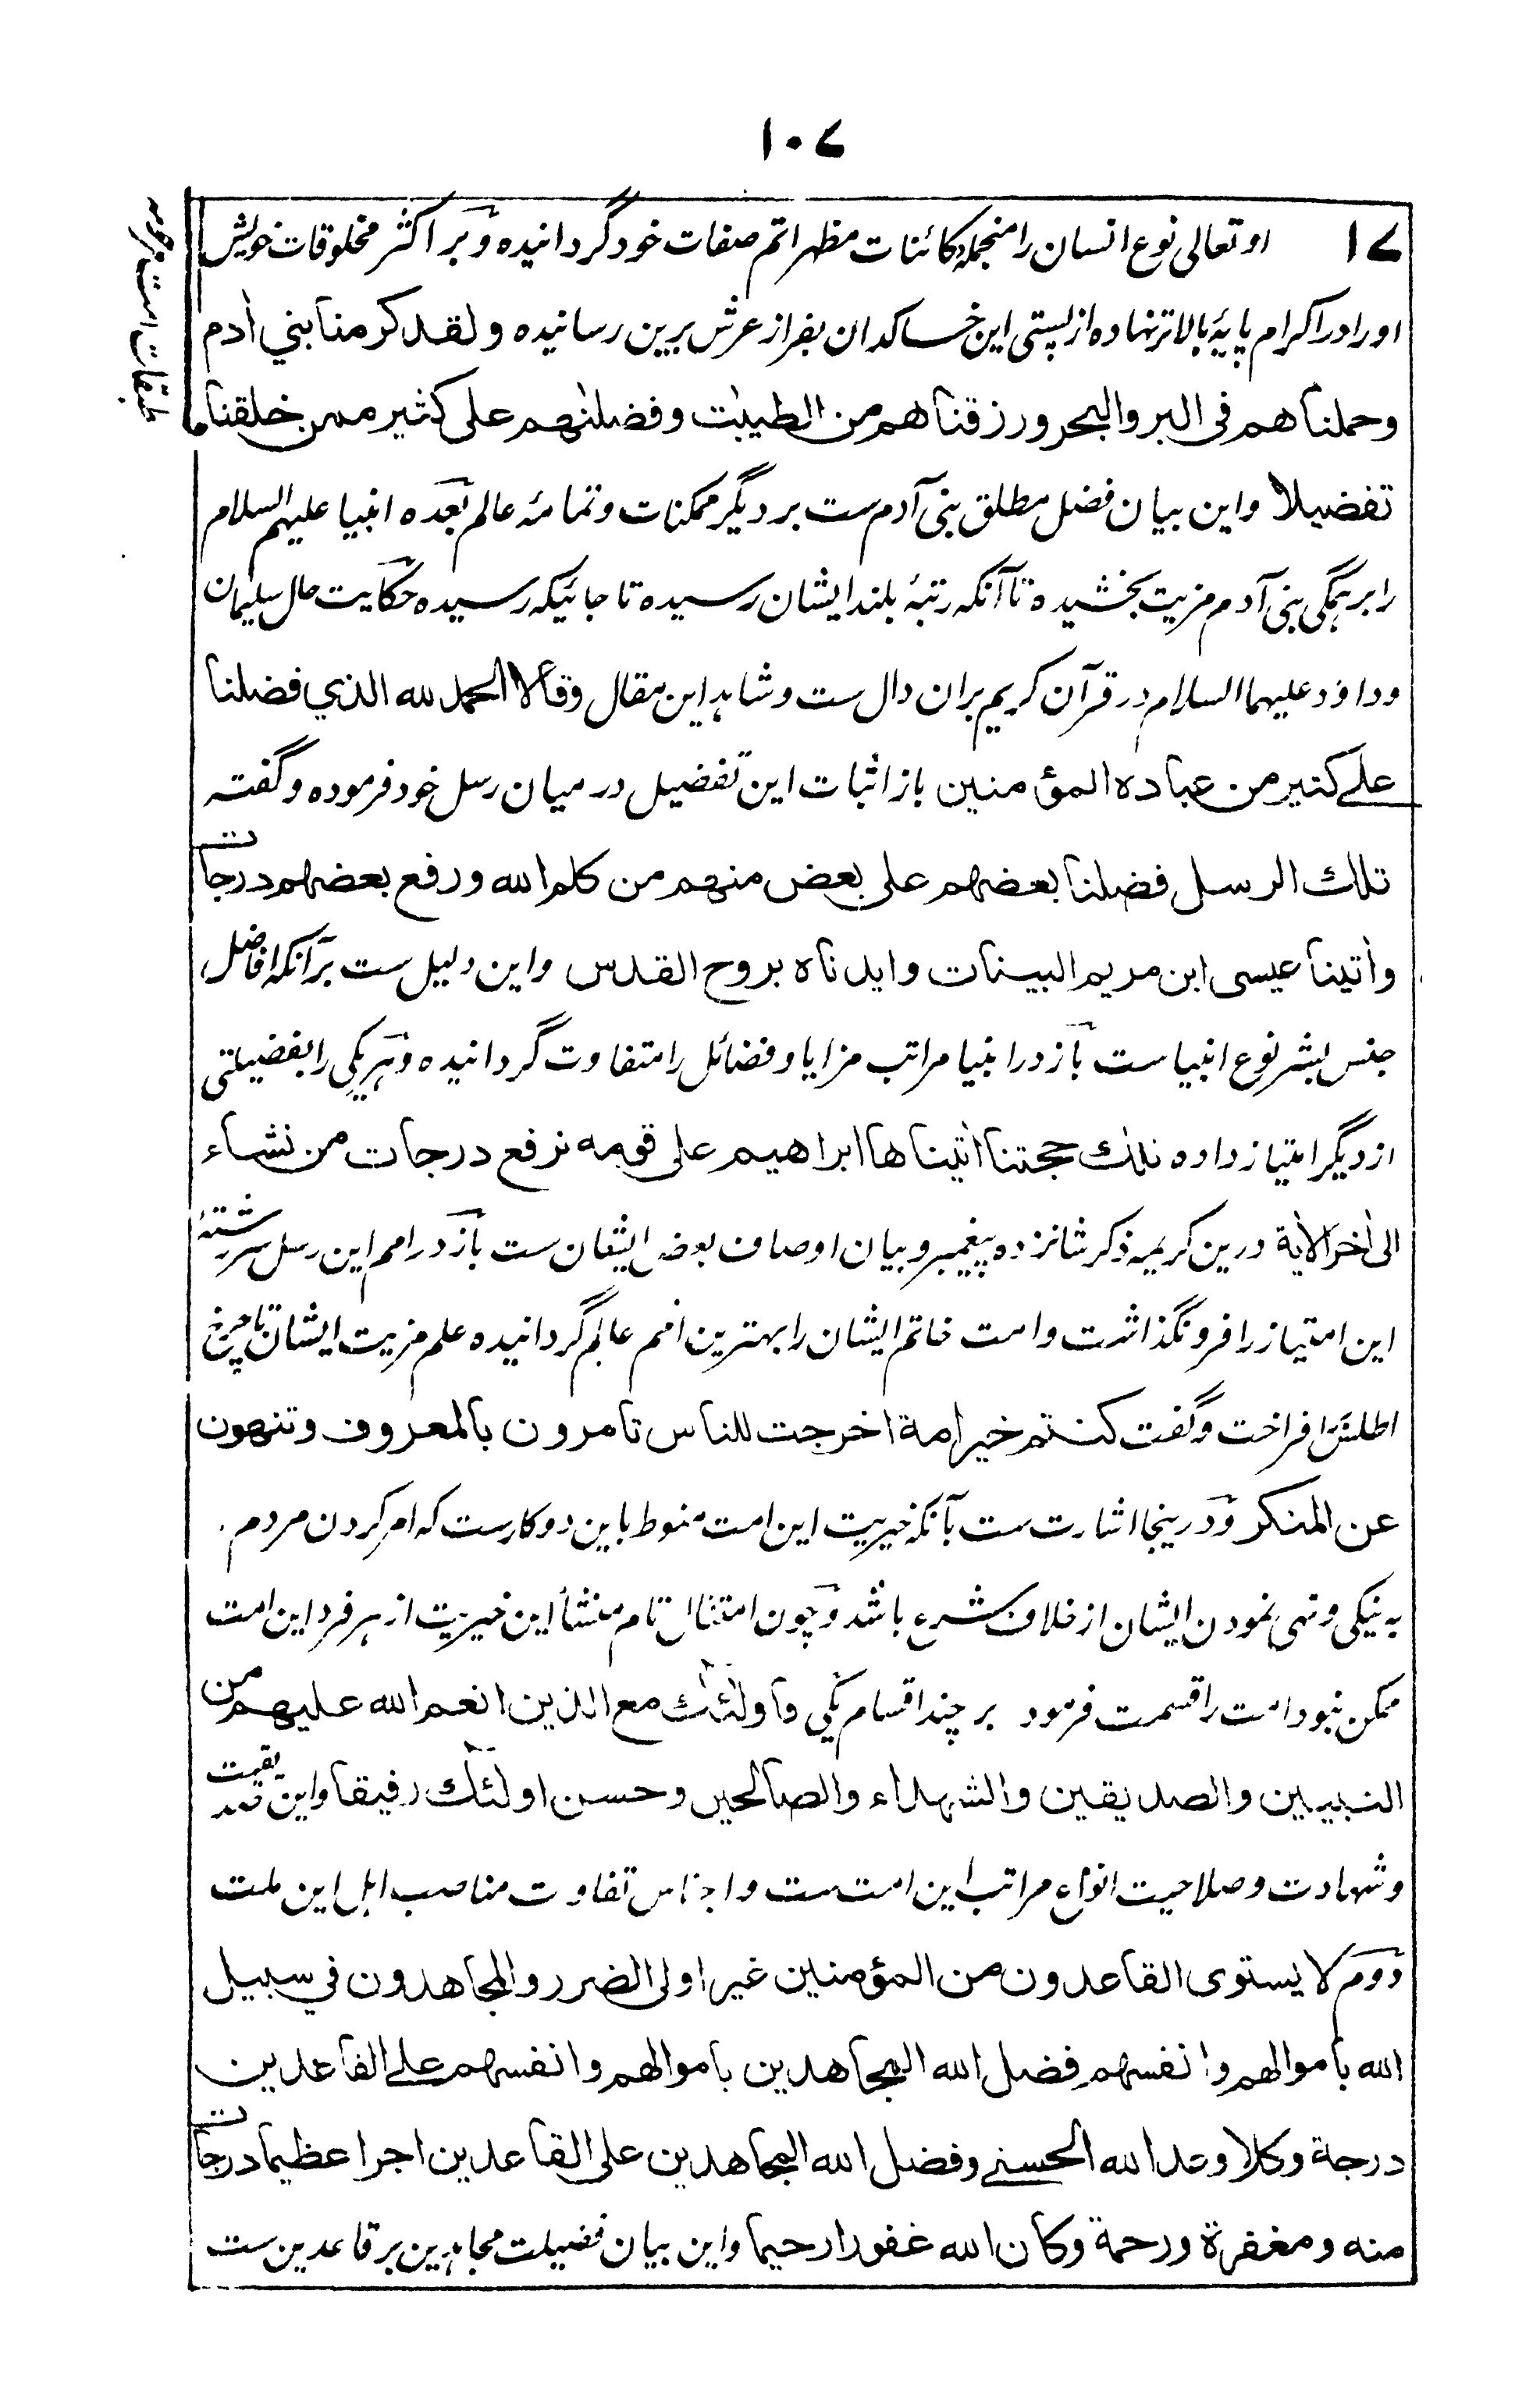 ۱۰۷
۱۷ او تعالی نوع انسان را منجملۀ کائنات مظهر اتم صفات خود گردانیده و بر اکثر مخلوقات خویش
او را در اکرام پایۀ بالاتر نهاده از پستی این خاکدان بفراز عرش برین رسانیده ولقد کرمنا بني اٰدم
وحملناهم فی البر والبحر ورزقناهم من الطیبٰت وفضلنٰهم علی کثیر ممن خلقنا
تفضیلا واین بیان فضل مطلق بنی آدم ست بر دیگر ممکنات و تمامۀ عالم بعده انبیا علیهم السلام
را بر همگی بنی آدم مزیت بخشیده تا آنکه رتبۀ بلند ایشان رسیده تا جائیکه رسیده حکایت حال سلیمان
و داؤد علیهما السلام در قرآن کریم بران دال ست و شاهد این مقال وقالا الحمد لله الذي فضلنا
علے کثیر من عباده المؤمنین باز اثبات این تفضیل در میان رسل خود فرموده و گفته
تلك الرسل فضلنا بعضهم علی بعض منهم من کلم الله ورفع بعضهم درجات
واٰتینا عیسی ابن مریم البینات وایدناه بروح القدس واین دلیل ست بر آنکه افاضل
جنس بشر نوع انبیاست باز در انبیا مراتب مزایا و فضائل را متفاوت گردانیده و هر یکی را بفضیلتی
از دیگر امتیاز داده تلك حجتنا اٰتیناها ابراهیم علی قومه نرفع درجات من نشاء
الی اٰخر الاٰیة درین کریمه ذکر شانزده پیغمبر و بیان اوصاف بعض ایشان ست باز در امم این رسل سررشتۀ
این امتیاز را فرو نگذاشت و امت خاتم ایشان را بهترین امم عالم گردانیده علم مزیت ایشان تا چرخ
اطلس افراخت و گفت کنتم خیر امة اخرجت للناس تامرون بالمعروف وتنهون
عن المنکر و درینجا اشارت ست بآنکه خیریت این امت منوط باین دو کارست که امر کردن مردم
به نیکی و نهی نمودن ایشان از خلاف شرع باشد و چون امتثال تام منشأ این خیریت از هر فرد این امت
ممکن نبود امت را قسمت فرمود بر چند اقسام یکی فاولٰئك مع الذین انعم الله علیهم من
النبیین والصدیقین والشهداء والصالحین وحسن اولٰئك رفیقا واین صدیقیت
و شهادت و صلاحیت انواع مراتب این امت ست و اجناس تفاوت مناصب اهل این ملت
دوم لا یستوی القاعدون من المؤمنین غیر اولی الضرر والمجاهدون في سبیل
الله باموالهم وانفسهم فضل الله المجاهدین باموالهم وانفسهم علے القاعدین
درجة وکلا وعد الله الحسنے وفضل الله المجاهدین علی القاعدین اجرا عظیما درجات
منه ومغفرة ورحمة وکان الله غفورا رحیما واین بیان فضیلت مجاهدین بر قاعدین ست
طبقات امت مرحومه